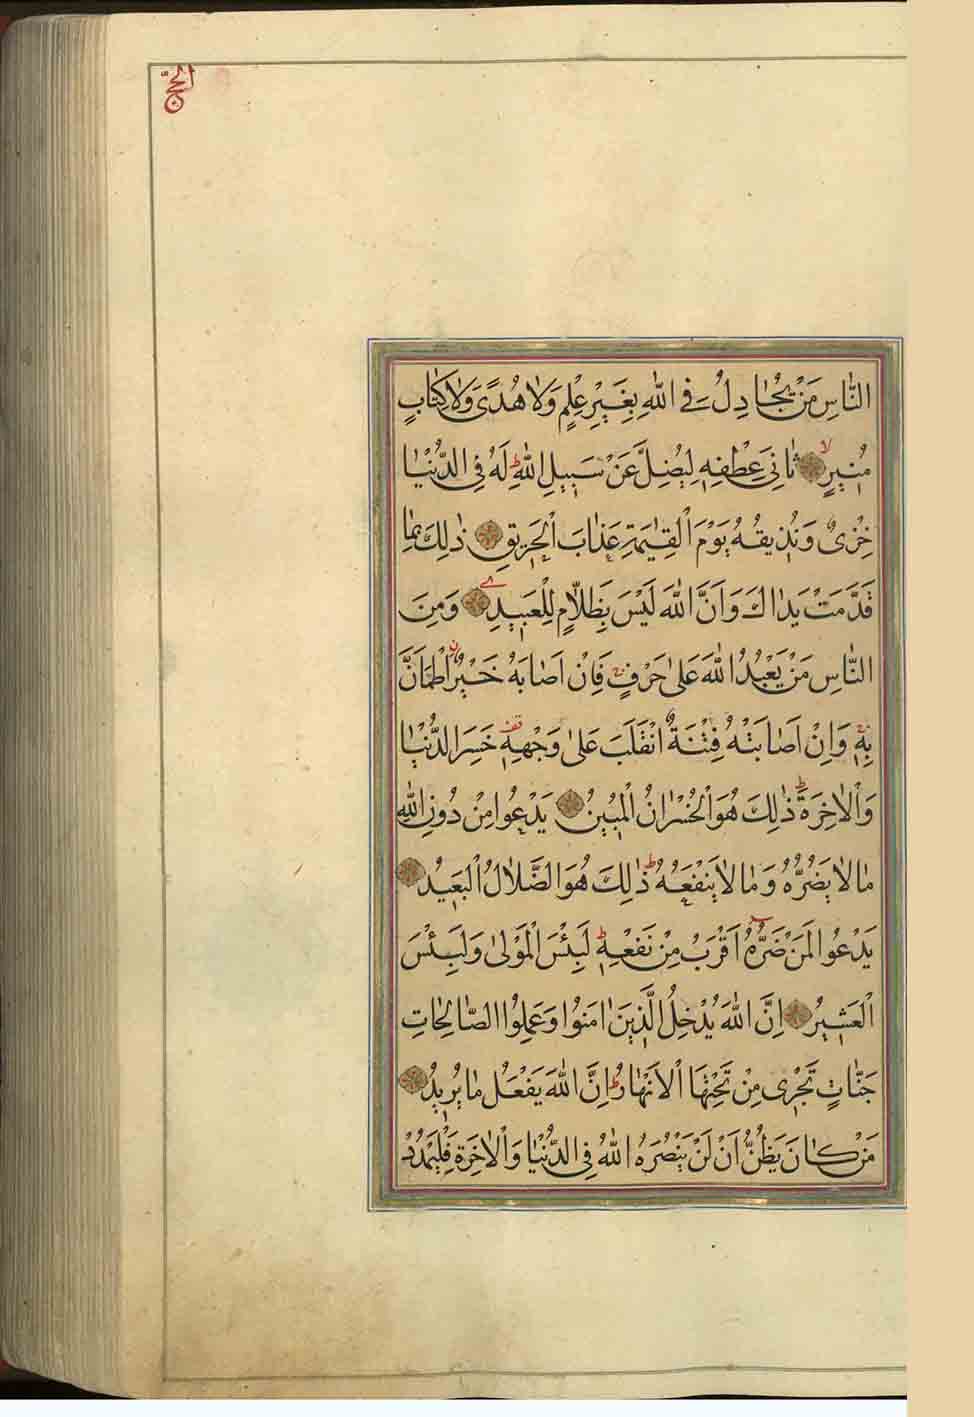 الحج
النَّاسِ مَنْ يُجَادِلُ فِي اللّٰهِ بِغَيْرِ عِلْمٍ وَلَا هُدًى وَلَا كِتَابٍ
مُنِيرٍ لا ثَانِيَ عِطْفِهِ لِيُضِلَّ عَنْ سَبِيلِ اللّٰهِ ط لَهُ فِي الدُّنْيَا
خِزْيٌ وَنُذِيقُهُ يَوْمَ الْقِيٰمَةِ عَذَابَ الْحَرِيقِ ذٰلِكَ بِمَا
قَدَّمَتْ يَدَاكَ وَاَنَّ اللّٰهَ لَيْسَ بِظَلَّامٍ لِلْعَبِيدِ وَمِنَ
النَّاسِ مَنْ يَعْبُدُ اللّٰهَ عَلٰى حَرْفٍ فَاِنْ اَصَابَهُ خَيْرٌ اطْمَاَنَّ
بِهِ وَاِنْ اَصَابَتْهُ فِتْنَةٌ انْقَلَبَ عَلٰى وَجْهِهِ قف خَسِرَ الدُّنْيَا
وَالْاٰخِرَةَ ط ذٰلِكَ هُوَ الْخُسْرَانُ الْمُبِينُ يَدْعُوا مِنْ دُونِ اللّٰهِ
مَا لَا يَضُرُّهُ وَمَا لَا يَنْفَعُهُ ط ذٰلِكَ هُوَ الضَّلَالُ الْبَعِيدُ
يَدْعُوا لَمَنْ ضَرُّهُ اَقْرَبُ مِنْ نَفْعِهِ ط لَبِئْسَ الْمَوْلٰى وَلَبِئْسَ
الْعَشِيرُ اِنَّ اللّٰهَ يُدْخِلُ الَّذِينَ اٰمَنُوا وَعَمِلُوا الصَّالِحَاتِ
جَنَّاتٍ تَجْرِي مِنْ تَحْتِهَا الْاَنْهَارُ ط اِنَّ اللّٰهَ يَفْعَلُ مَا يُرِيدُ
مَنْ كَانَ يَظُنُّ اَنْ لَنْ يَنْصُرَهُ اللّٰهُ فِي الدُّنْيَا وَالْاٰخِرَةِ فَلْيَمْدُدْ